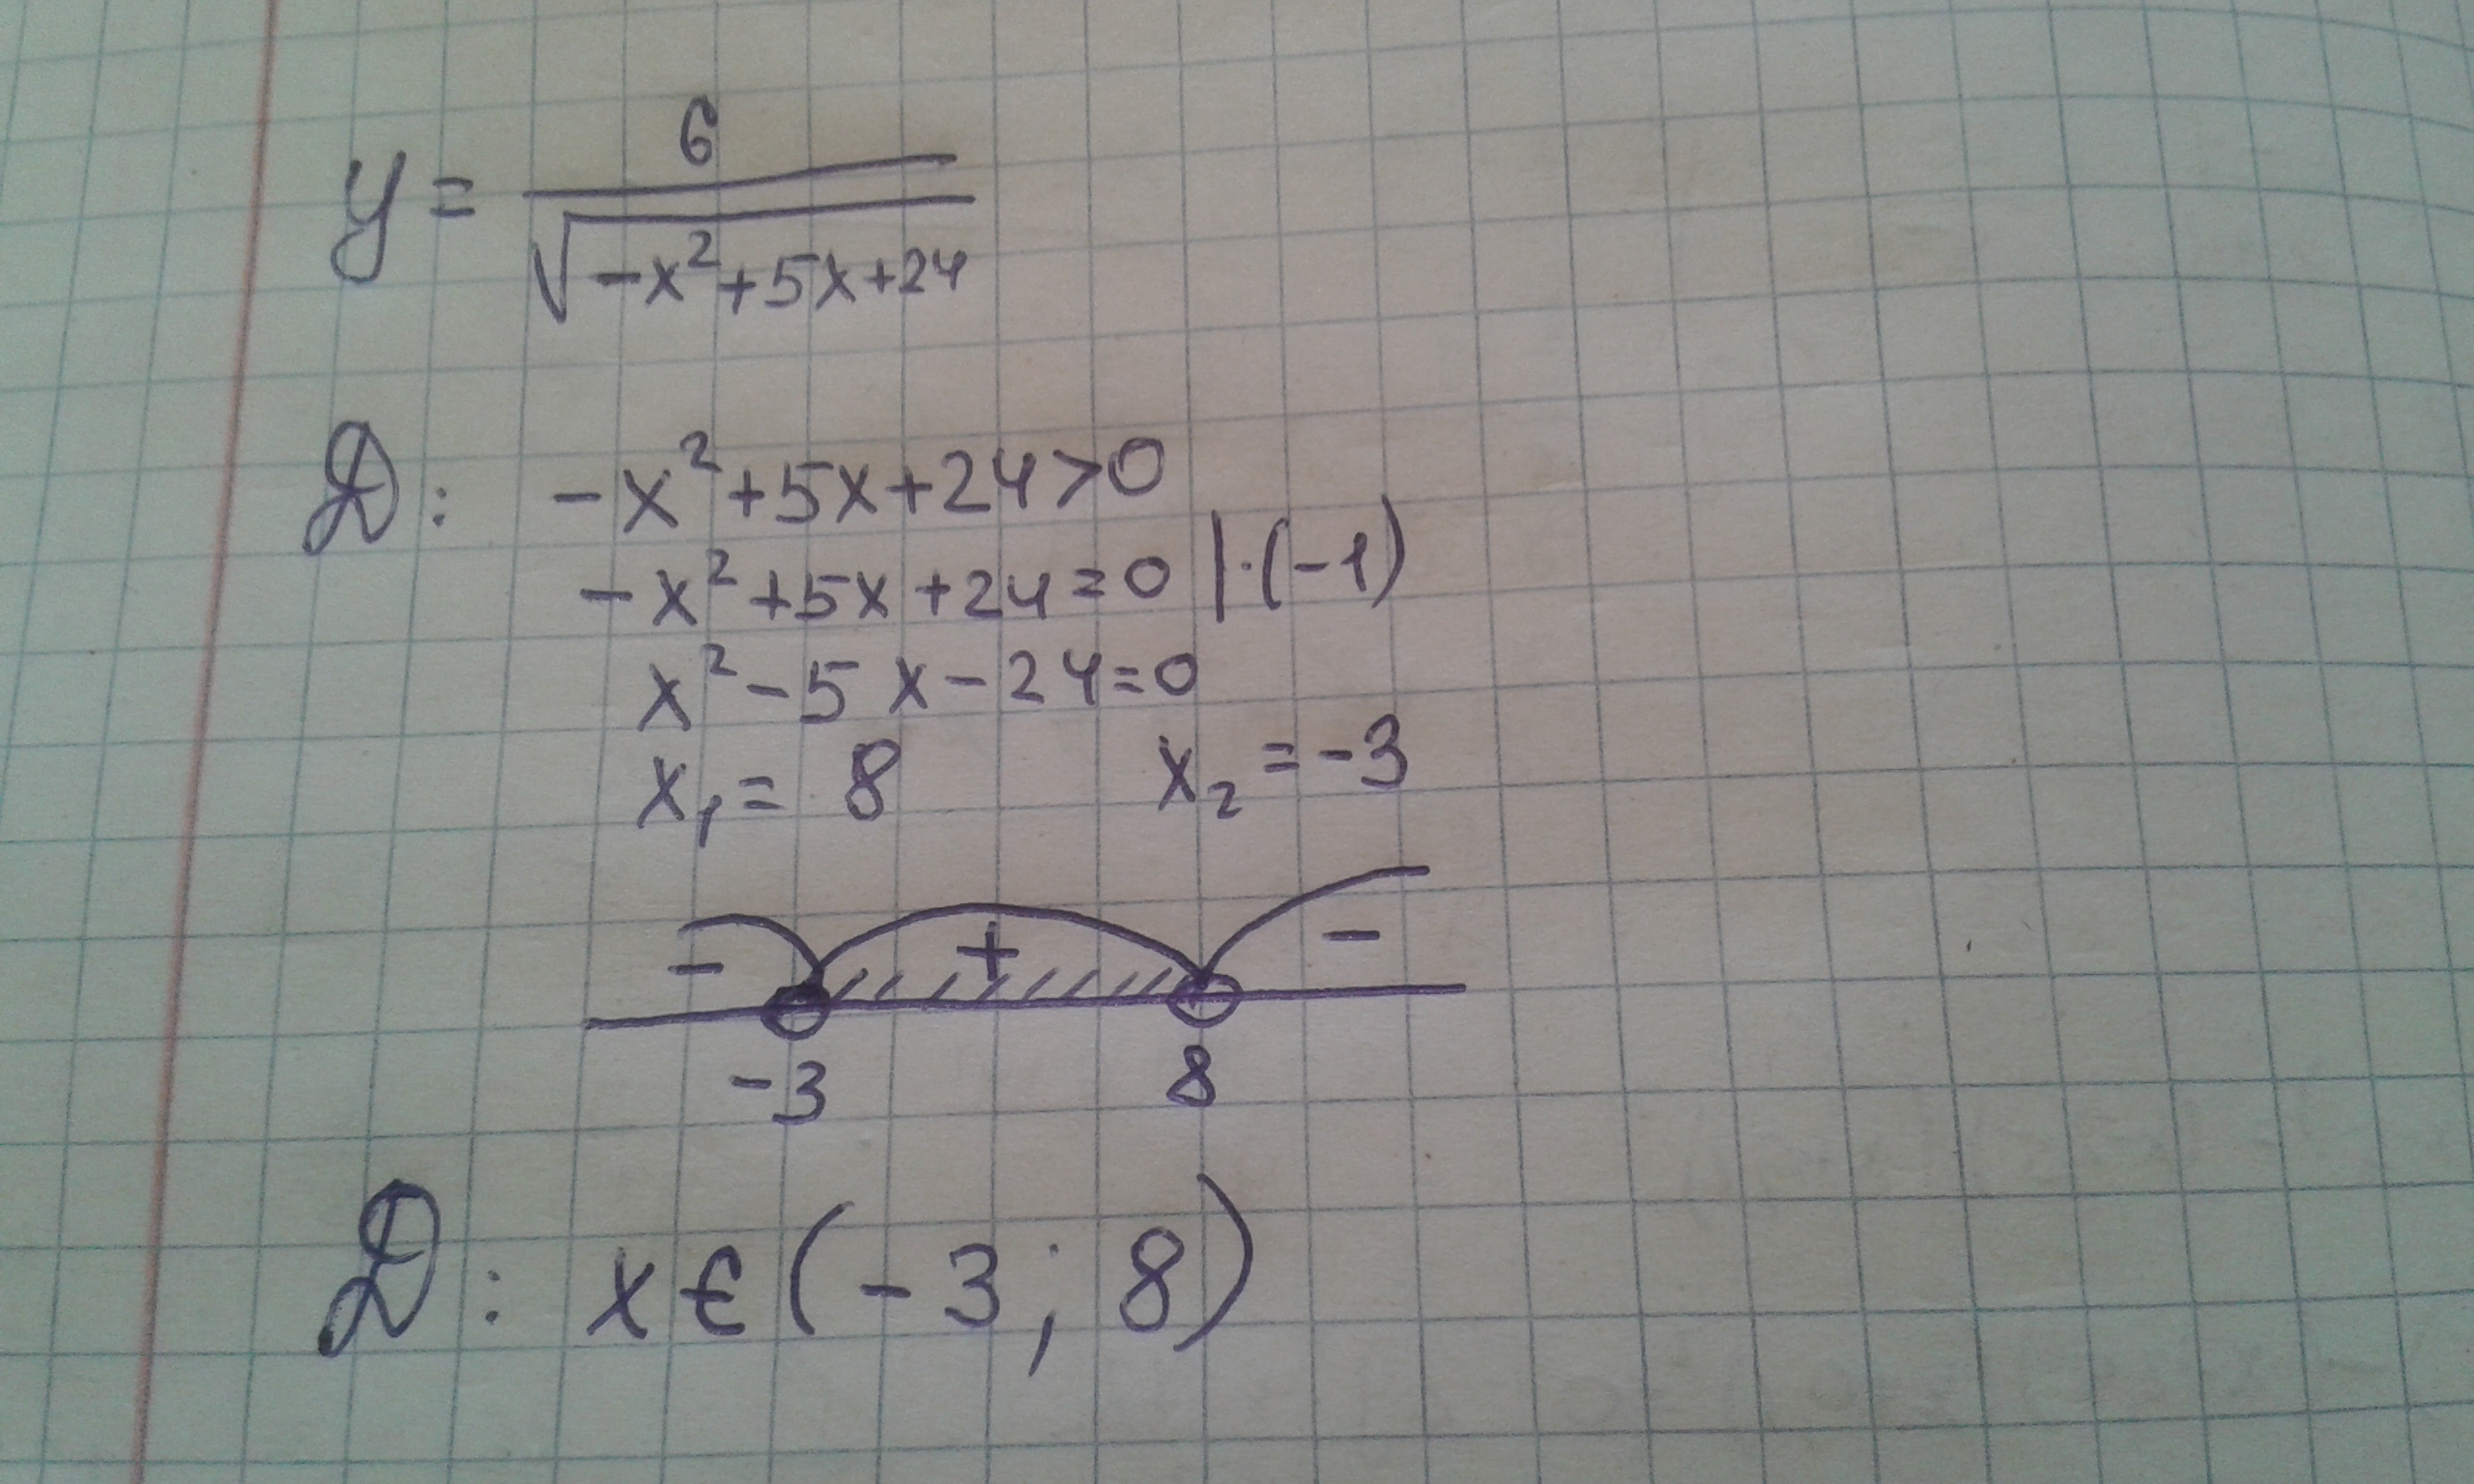 y = 6 / √(-x²+5x+24)
D: -x²+5x+24>0
-x²+5x+24=0 |·(-1)
x²-5x-24=0
x₁= 8 x₂ =-3
- + -
-3 8
D: x∈(-3; 8)